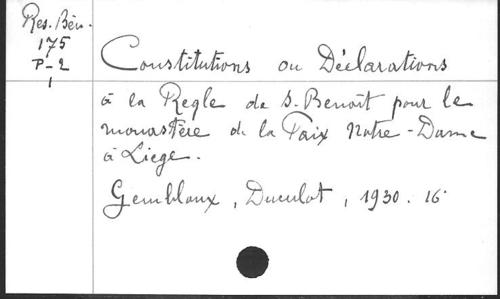 Res. Bén.
175
P-2
1
Constitutions ou Déclarations
à la Regle de S. Benoît pour le
monastère de la Paix Notre-Dame
à Liege.
Gembloux, Duculot, 1930. 16°